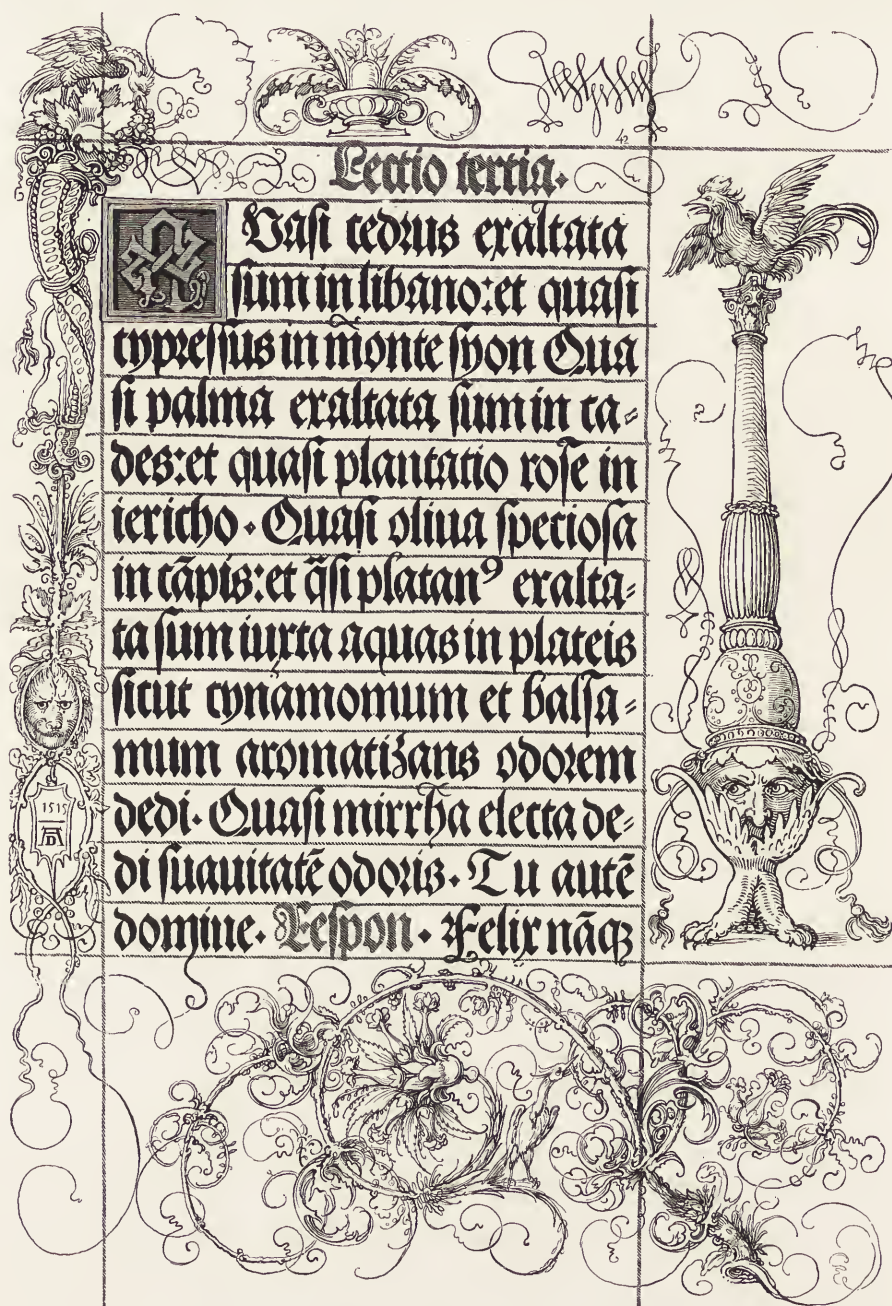 42
Lectio tertia.
QVasi cedrus exaltata
sum in libano: et quasi
cypressus in monte syon Qua
si palma exaltata sum in ca⸗
des: et quasi plantatio rose in
iericho. Quasi oliua speciosa
in cāpis: et q̄si platanꝰ exalta⸗
ta sum iuxta aquas in plateis
sicut cynamomum et balsa⸗
mum aromatizans odorem
dedi. Quasi mirrha electa de⸗
di suauitatē odoris. Tu autē
domine. Respon. Felix nāqꝫ
1515
AD